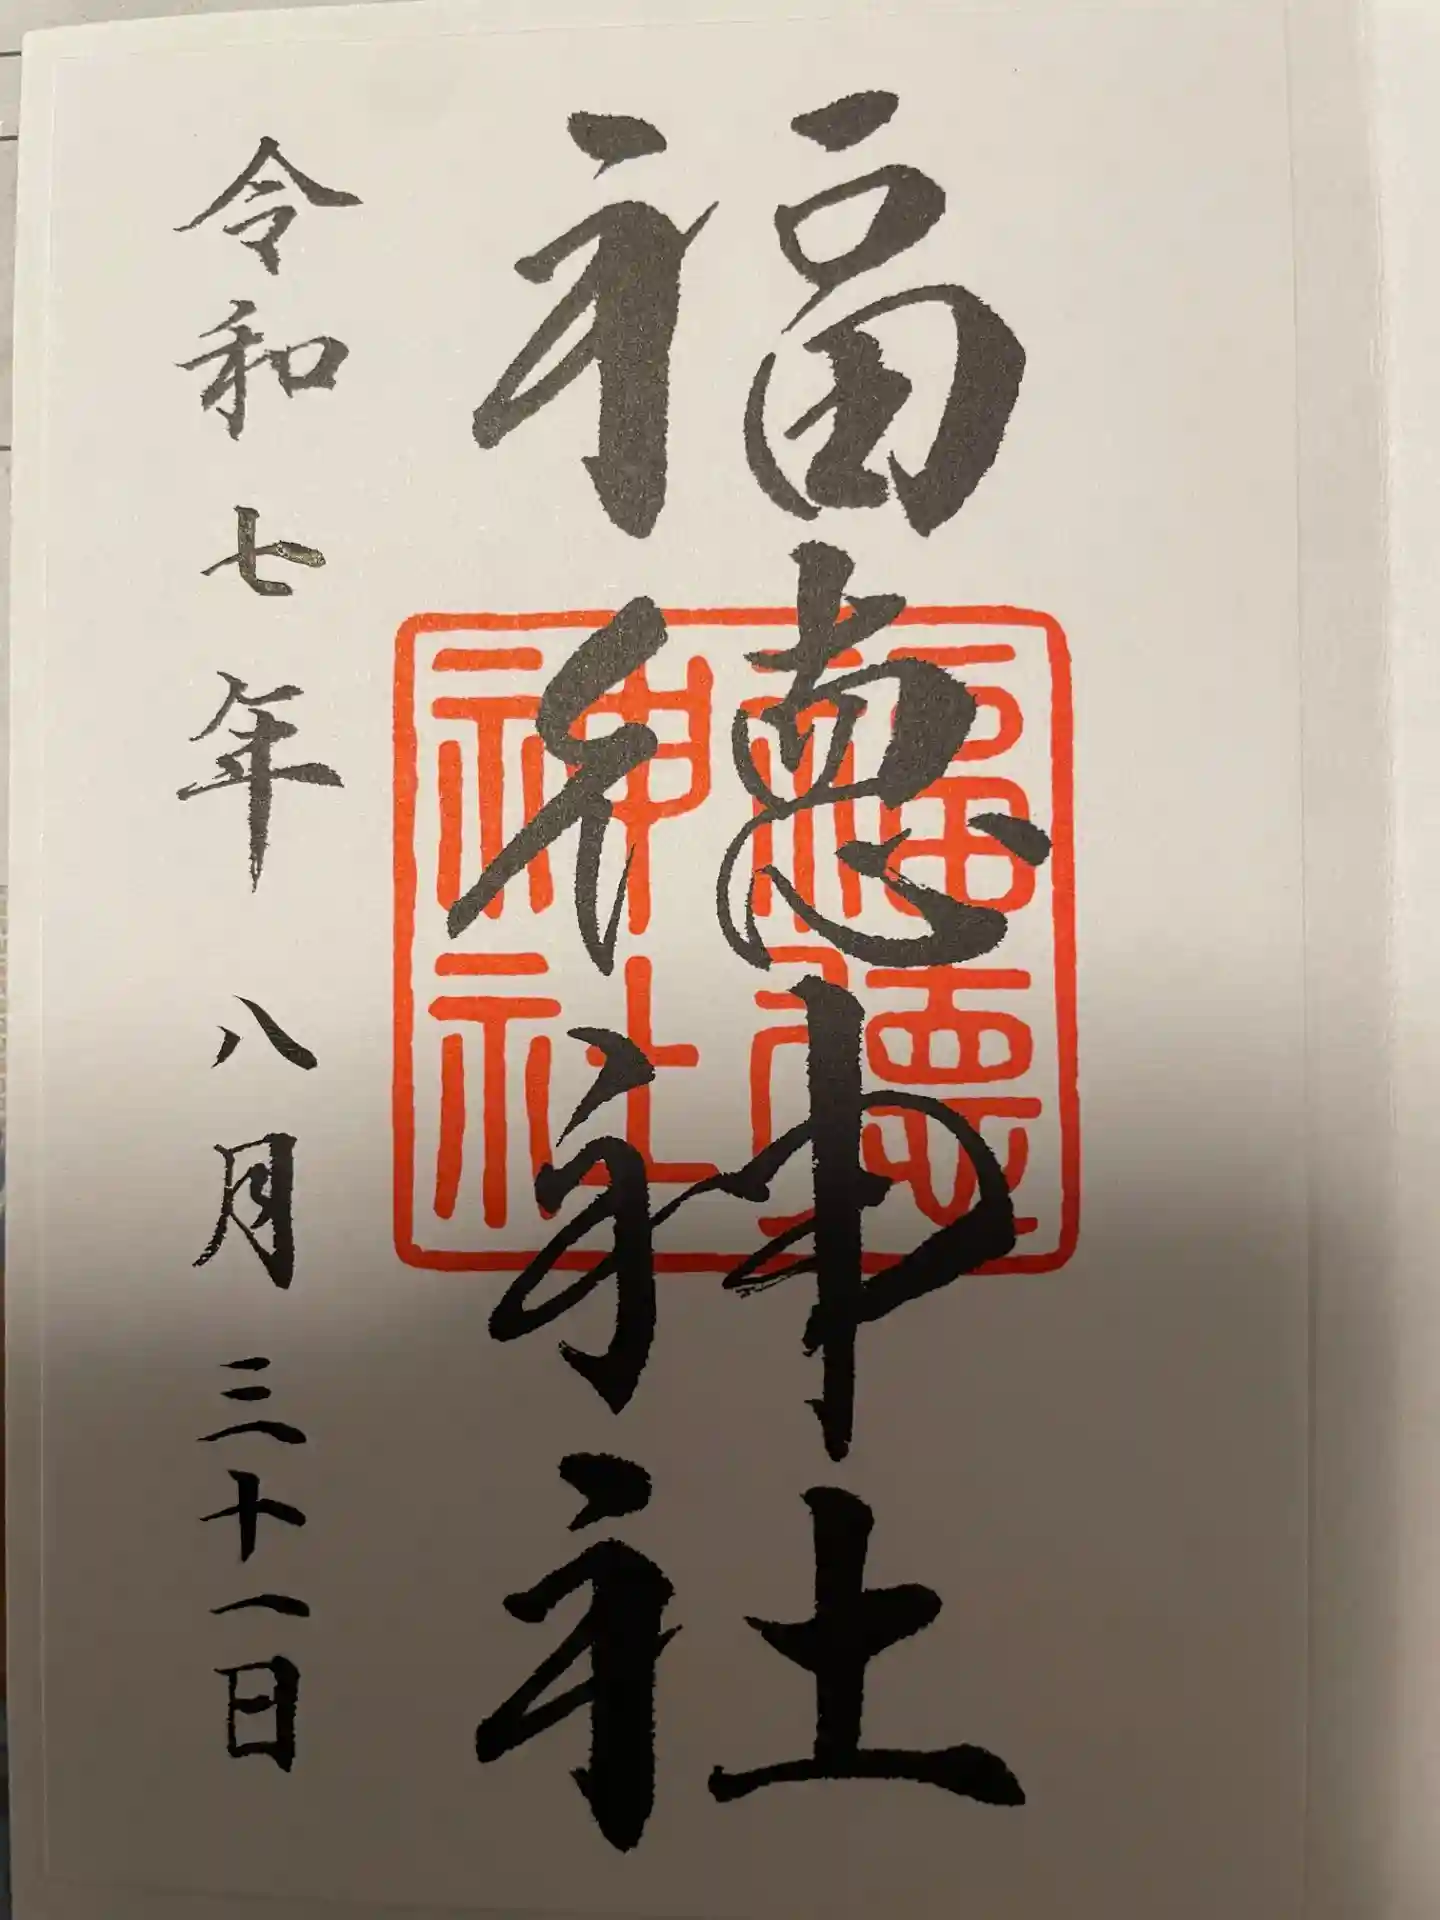 福徳神社
福徳神社
令和七年八月三十一日